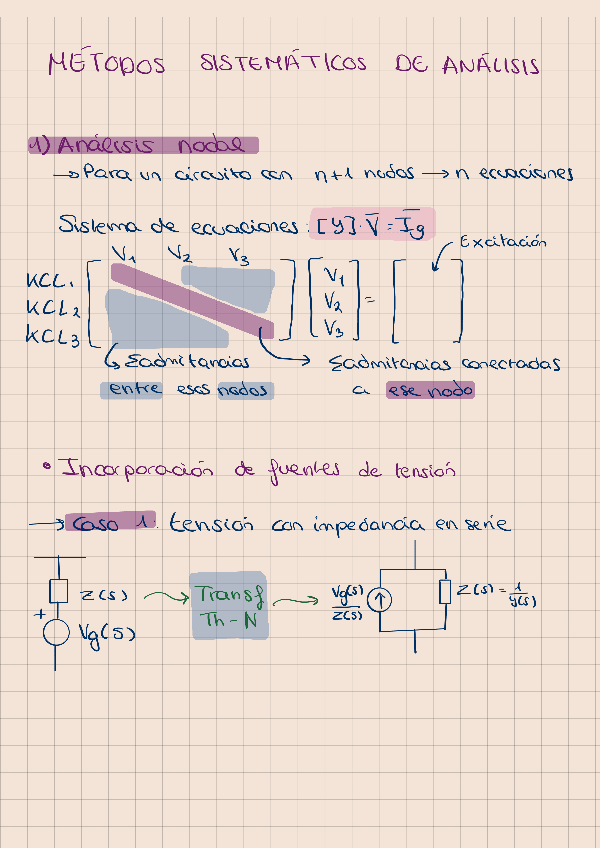 MÉTODOS SISTEMÁTICOS DE ANÁLISIS
1) Análisis nodal
→ Para un circuito con n+1 nodos → n ecuaciones
Sistema de ecuaciones: [Y]·V̄ = Īg
Excitación
V₁ V₂ V₃
KCL₁
KCL₂
KCL₃
V₁
V₂ =
V₃
Σadmitancias
entre esos nodos
Σadmitancias conectadas
a ese nodo
• Incorporación de fuentes de tensión
→ Caso 1: tensión con impedancia en serie
Z(s)
+
Vg(s)
Transf
Th-N
Vg(s)/Z(s)
Z(s) = 1/y(s)